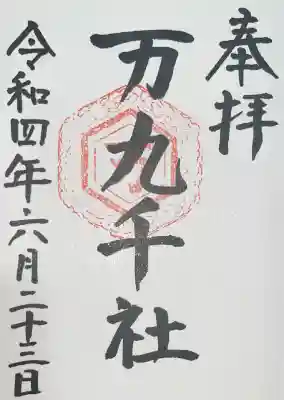 奉拝
万九千社
令和四年六月二十三日